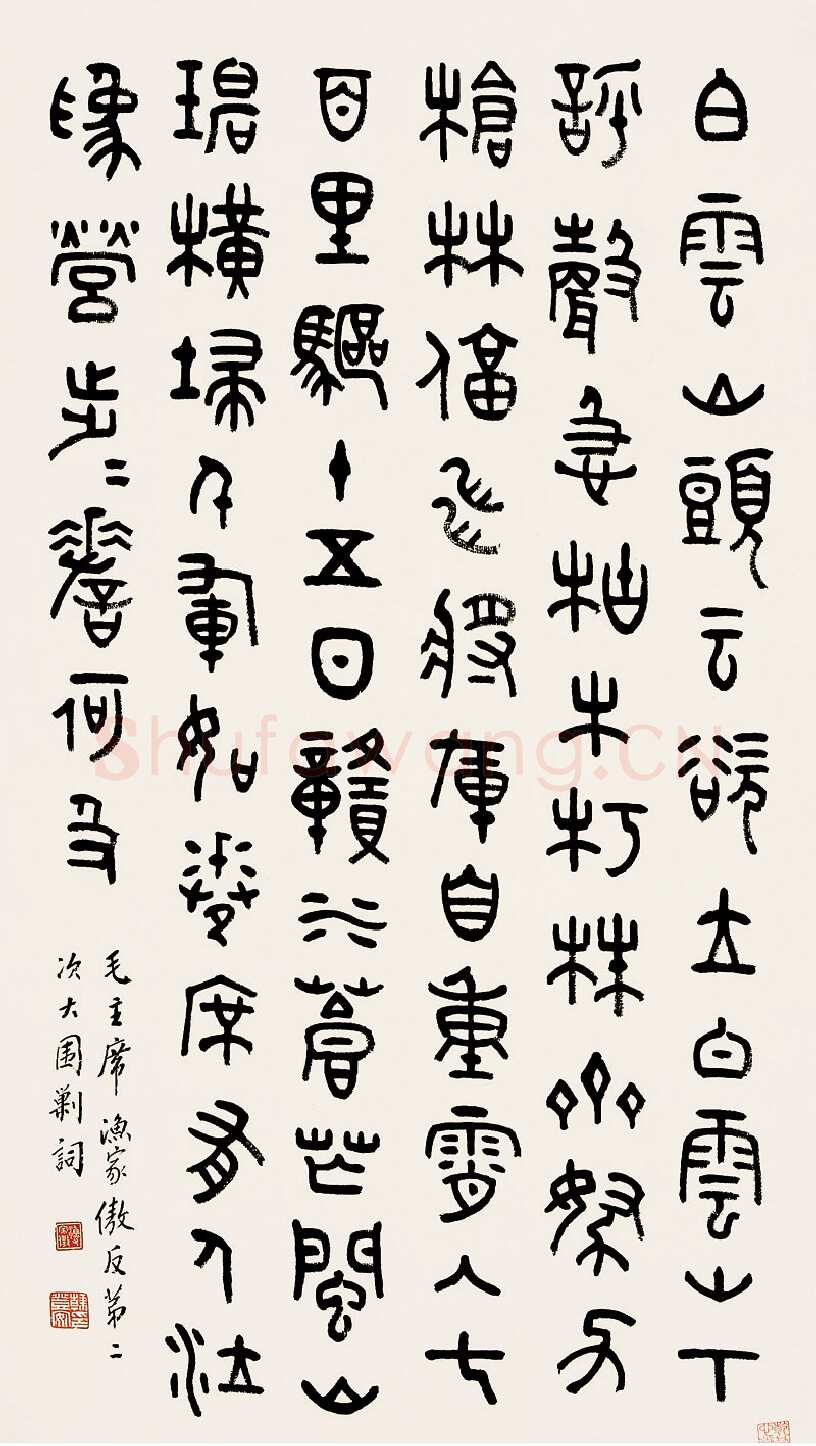 白雲山頭云欲立白雲山下
呼聲急枯木朽株齊努力
槍林偪飛將軍自重霄入七
百里驅十五日贛水蒼茫閩山
碧橫掃千軍如卷席有人泣
爲營步〻嗟何及
毛主席漁家傲反第二
次大圍剿詞
Shufawang.CN